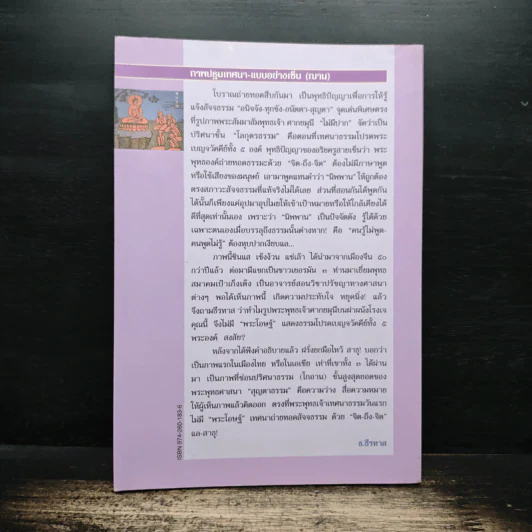 ภาพปฐมเทศนา-แบบอย่างเซ็น (ฌาน)
โบราณถ่ายทอดสืบกันมา เป็นพุทธิปัญญาเพื่อการให้รู้
แจ้งสัจจธรรม "อนิจจัง-ทุกขัง-อนัตตา-สุญตา" จุดเด่นพิเศษตรง
ที่รูปภาพพระสัมมาสัมพุทธเจ้า ศากยมุนี "ไม่มีปาก" จัดว่าเป็น
ปริศนาชั้น "โลกุตรธรรม" คือตอนที่เทศนาธรรมโปรดพระ
เบญจวัคคีย์ทั้ง ๕ องค์ พุทธิปัญญาของอริยครูสายเซ็นว่า พระ
พุทธองค์ถ่ายทอดธรรมะด้วย "จิต-ถึง-จิต" ต้องไม่มีภาษาพูด
หรือใช้เสียงของมนุษย์ เอามาพูดแทนคำว่า "นิพพาน" ให้ถูกต้อง
ตรงสภาวะสัจจธรรมที่แท้จริงไม่ได้เลย ส่วนที่สอนกันได้พูดกัน
ได้นั้นก็เพียงแค่อุปมาอุปไมยให้เข้าเป้าหมายหรือให้ใกล้เคียงได้
ดีที่สุดเท่านั้นเอง เพราะว่า "นิพพาน" เป็นปัจจัตตัง รู้ได้ด้วย
เฉพาะตนเองเมื่อบรรลุถึงธรรมนั้นต่างหาก! คือ "คนรู้ไม่พูด-
คนพูดไม่รู้" ต้องหุบปากเงียบแล...
ภาพนี้ซินแส เซ้งง้วน แซ่เล้า ได้นำมาจากเมืองจีน ๕๐
กว่าปีแล้ว ต่อมามีแขกเป็นชาวเยอรมัน ๓ ท่านมาเยี่ยมพุทธ
สมาคมเป้าเก็งเต็ง เป็นอาจารย์สอนวิชาปรัชญาทางศาสนา
ต่างๆ พอได้เห็นภาพนี้ เกิดความประทับใจ หยุดนิ่ง! แล้ว
จึงถามธีรทาส ว่าทำไมรูปพระพุทธเจ้าศากยมุนีบนฝาผนังโรงเจ
คุณนี้ จึงไม่มี "พระโอษฐ์" แสดงธรรมโปรดเบญจวัคคีย์ทั้ง ๕
พระองค์ สงสัย?
หลังจากได้ฟังคำอธิบายแล้ว ฝรั่งยกมือไหว้ สาธุ! บอกว่า
เป็นภาพแรกในเมืองไทย หรือในเอเชีย เท่าที่เขาทั้ง ๓ ได้ผ่าน
มา เป็นภาพที่ซ่อนปริศนาธรรม (โกอาน) ชั้นสูงสุดยอดของ
พระพุทธศาสนา "สุญตาธรรม" คือความว่าง สื่อความหมาย
ให้ผู้เห็นภาพแล้วคิดออก ตรงที่พระพุทธเจ้าเทศนาธรรมวันแรก
ไม่มี "พระโอษฐ์" เทศนาถ่ายทอดสัจจธรรม ด้วย "จิต-ถึง-จิต"
แล-สาธุ!
ธ.ธีรทาส
ISBN 974-260-183-6